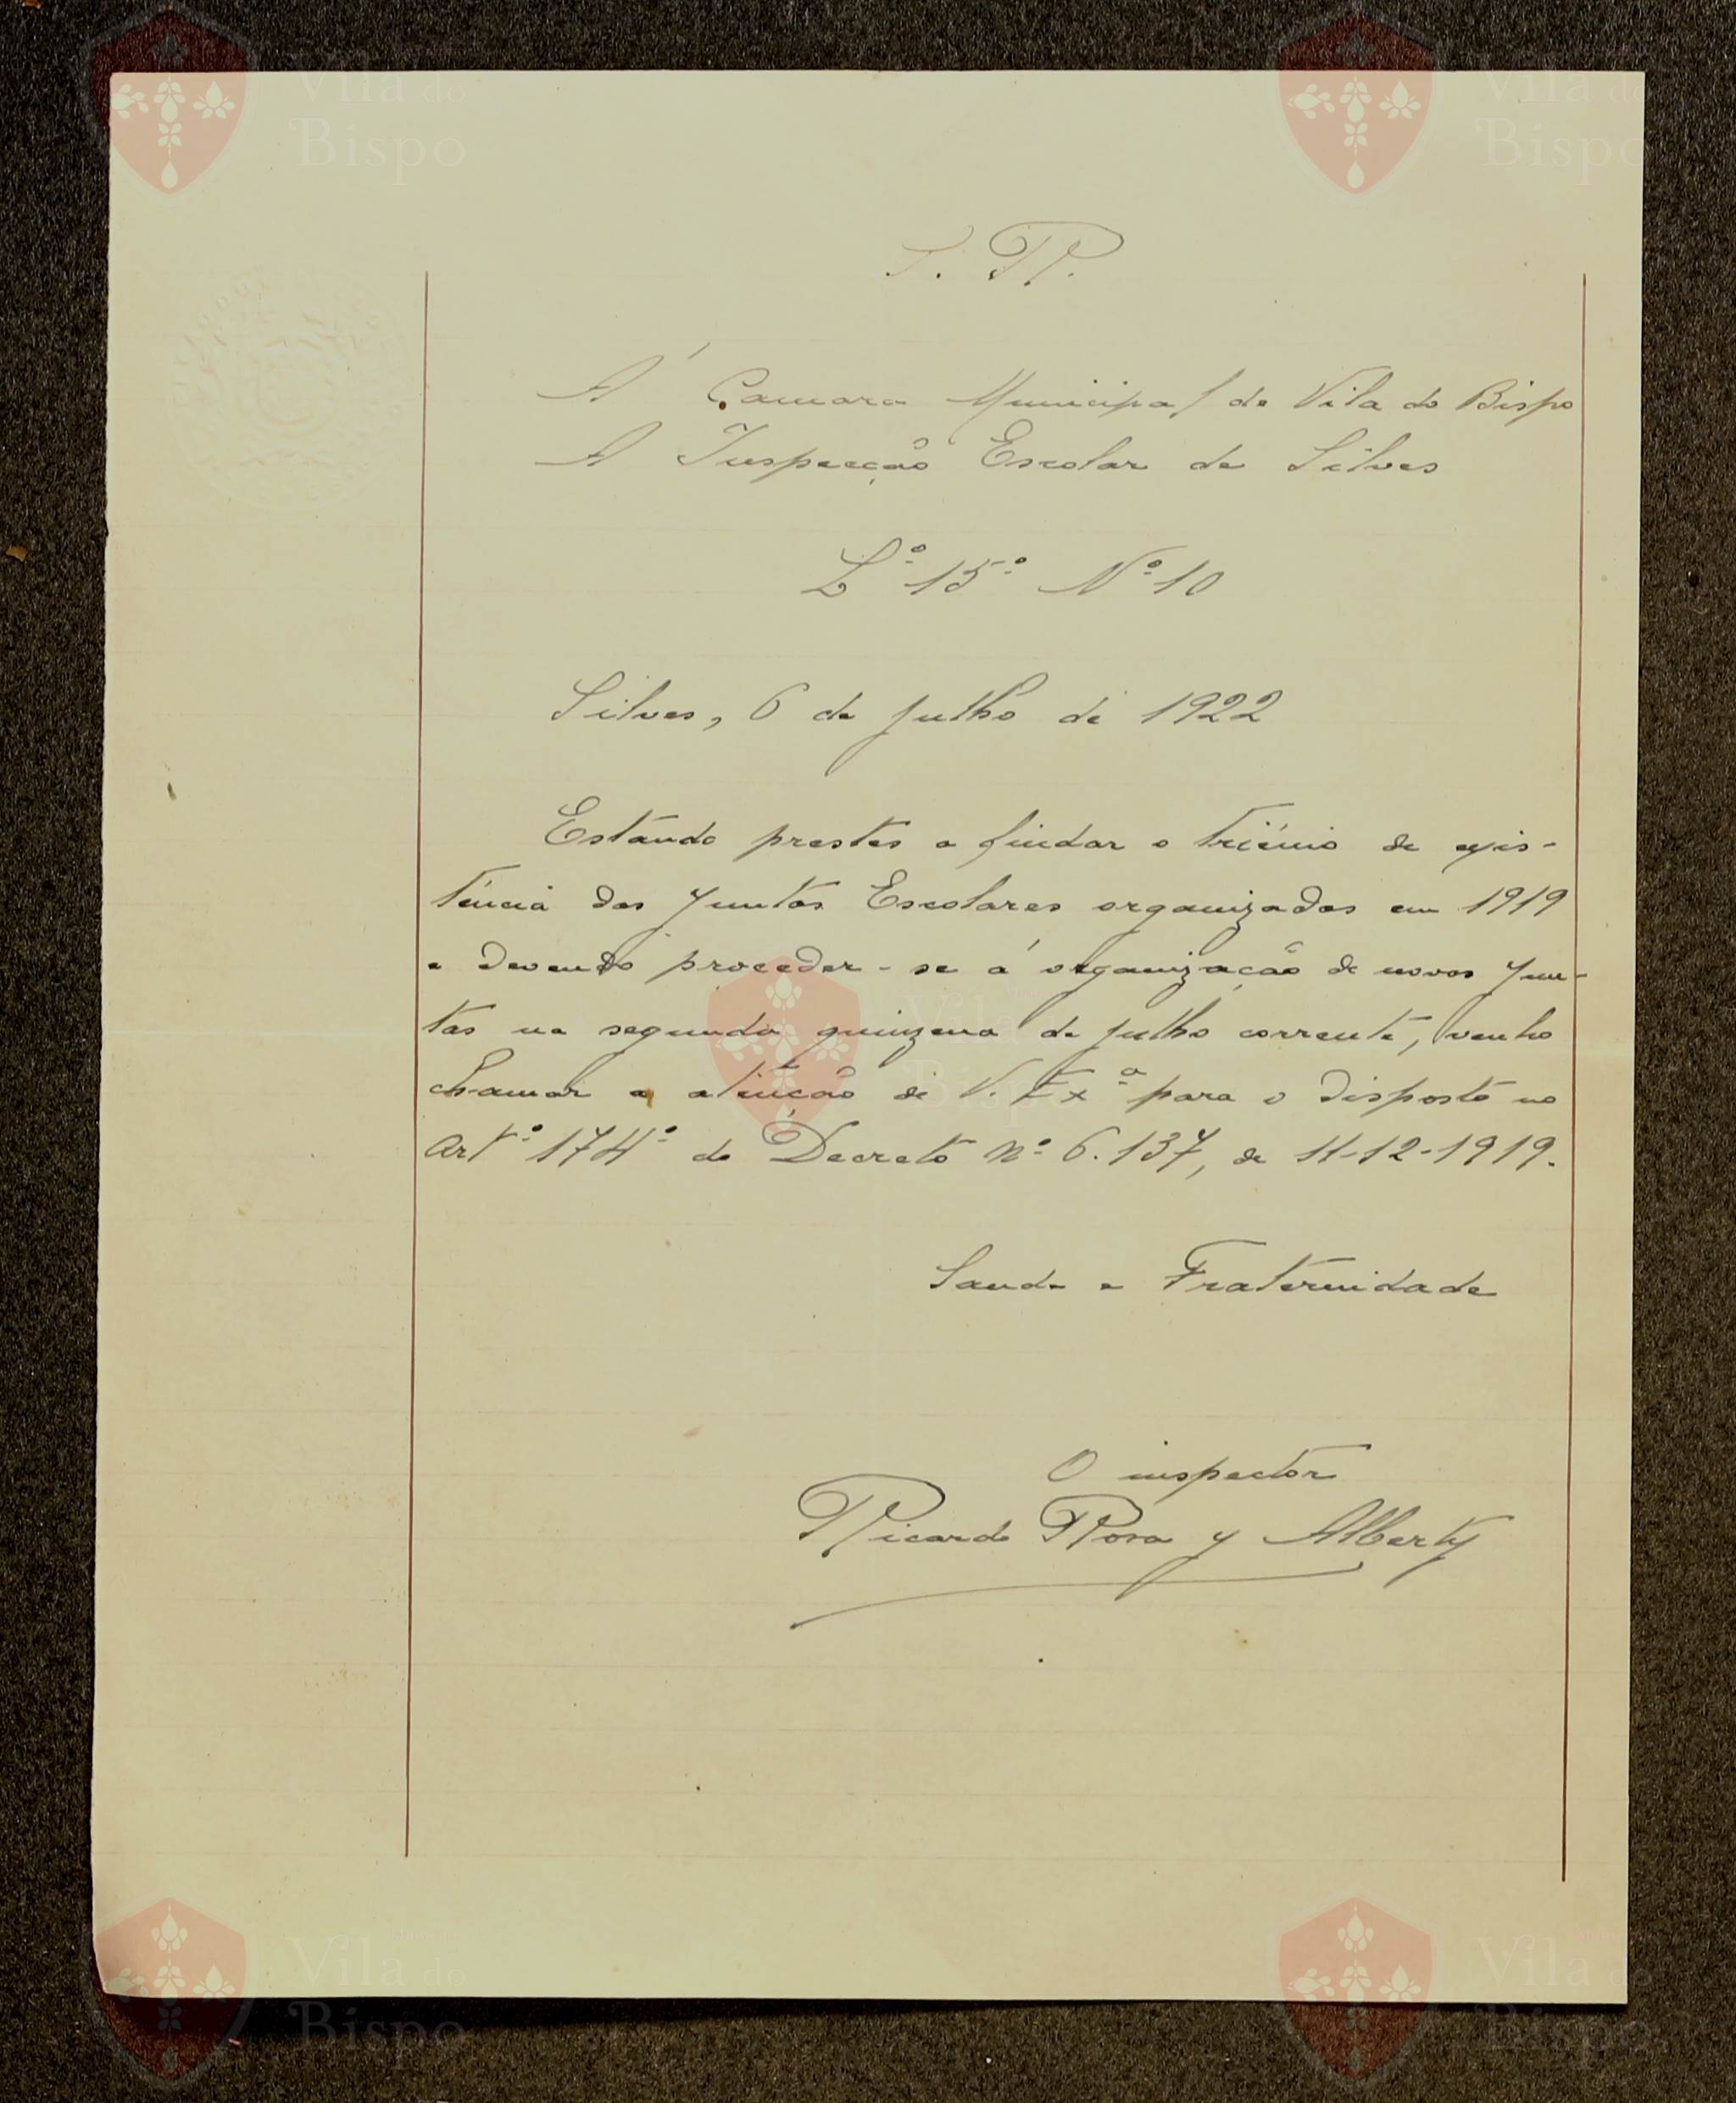 S. R.
Á Camara Municipal de Vila do Bispo
A Inspecção Escolar de Silves
L.º 15.º N.º 10
Silves, 6 de julho de 1922
Estando prestes a findar o triénio de exis-
tência das Juntas Escolares organizadas em 1919
e devendo proceder-se á organização de novas Jun-
tas na segunda quinzena de julho corrente, venho
chamar a atenção de V. Ex.ª para o disposto no
art.º 174.º do Decreto n.º 6.137, de 11-12-1919.
Saude e Fraternidade
O inspector
Ricardo Rosa y Alberty
Vila do
Bispo
Vila do
Bispo
Vila do
Bispo
Vila do
Bispo
Vila do
Bispo